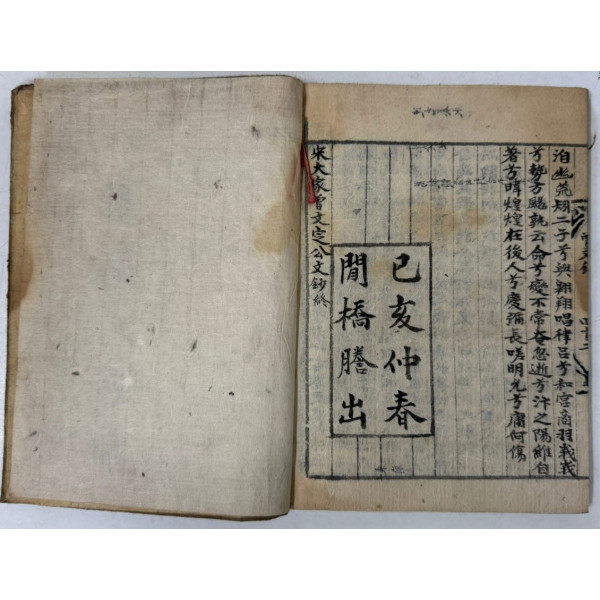 洎幽荒矧二子兮與翱翔唱律呂兮和宮商羽義義
兮勢方颺孰云命兮變不常奄忽逝兮汴之陽維自
著兮暐煌煌在後人兮慶彌長嗟明允兮庸何傷
己亥仲春
閒橋謄出
宋大家曾文定公文鈔終